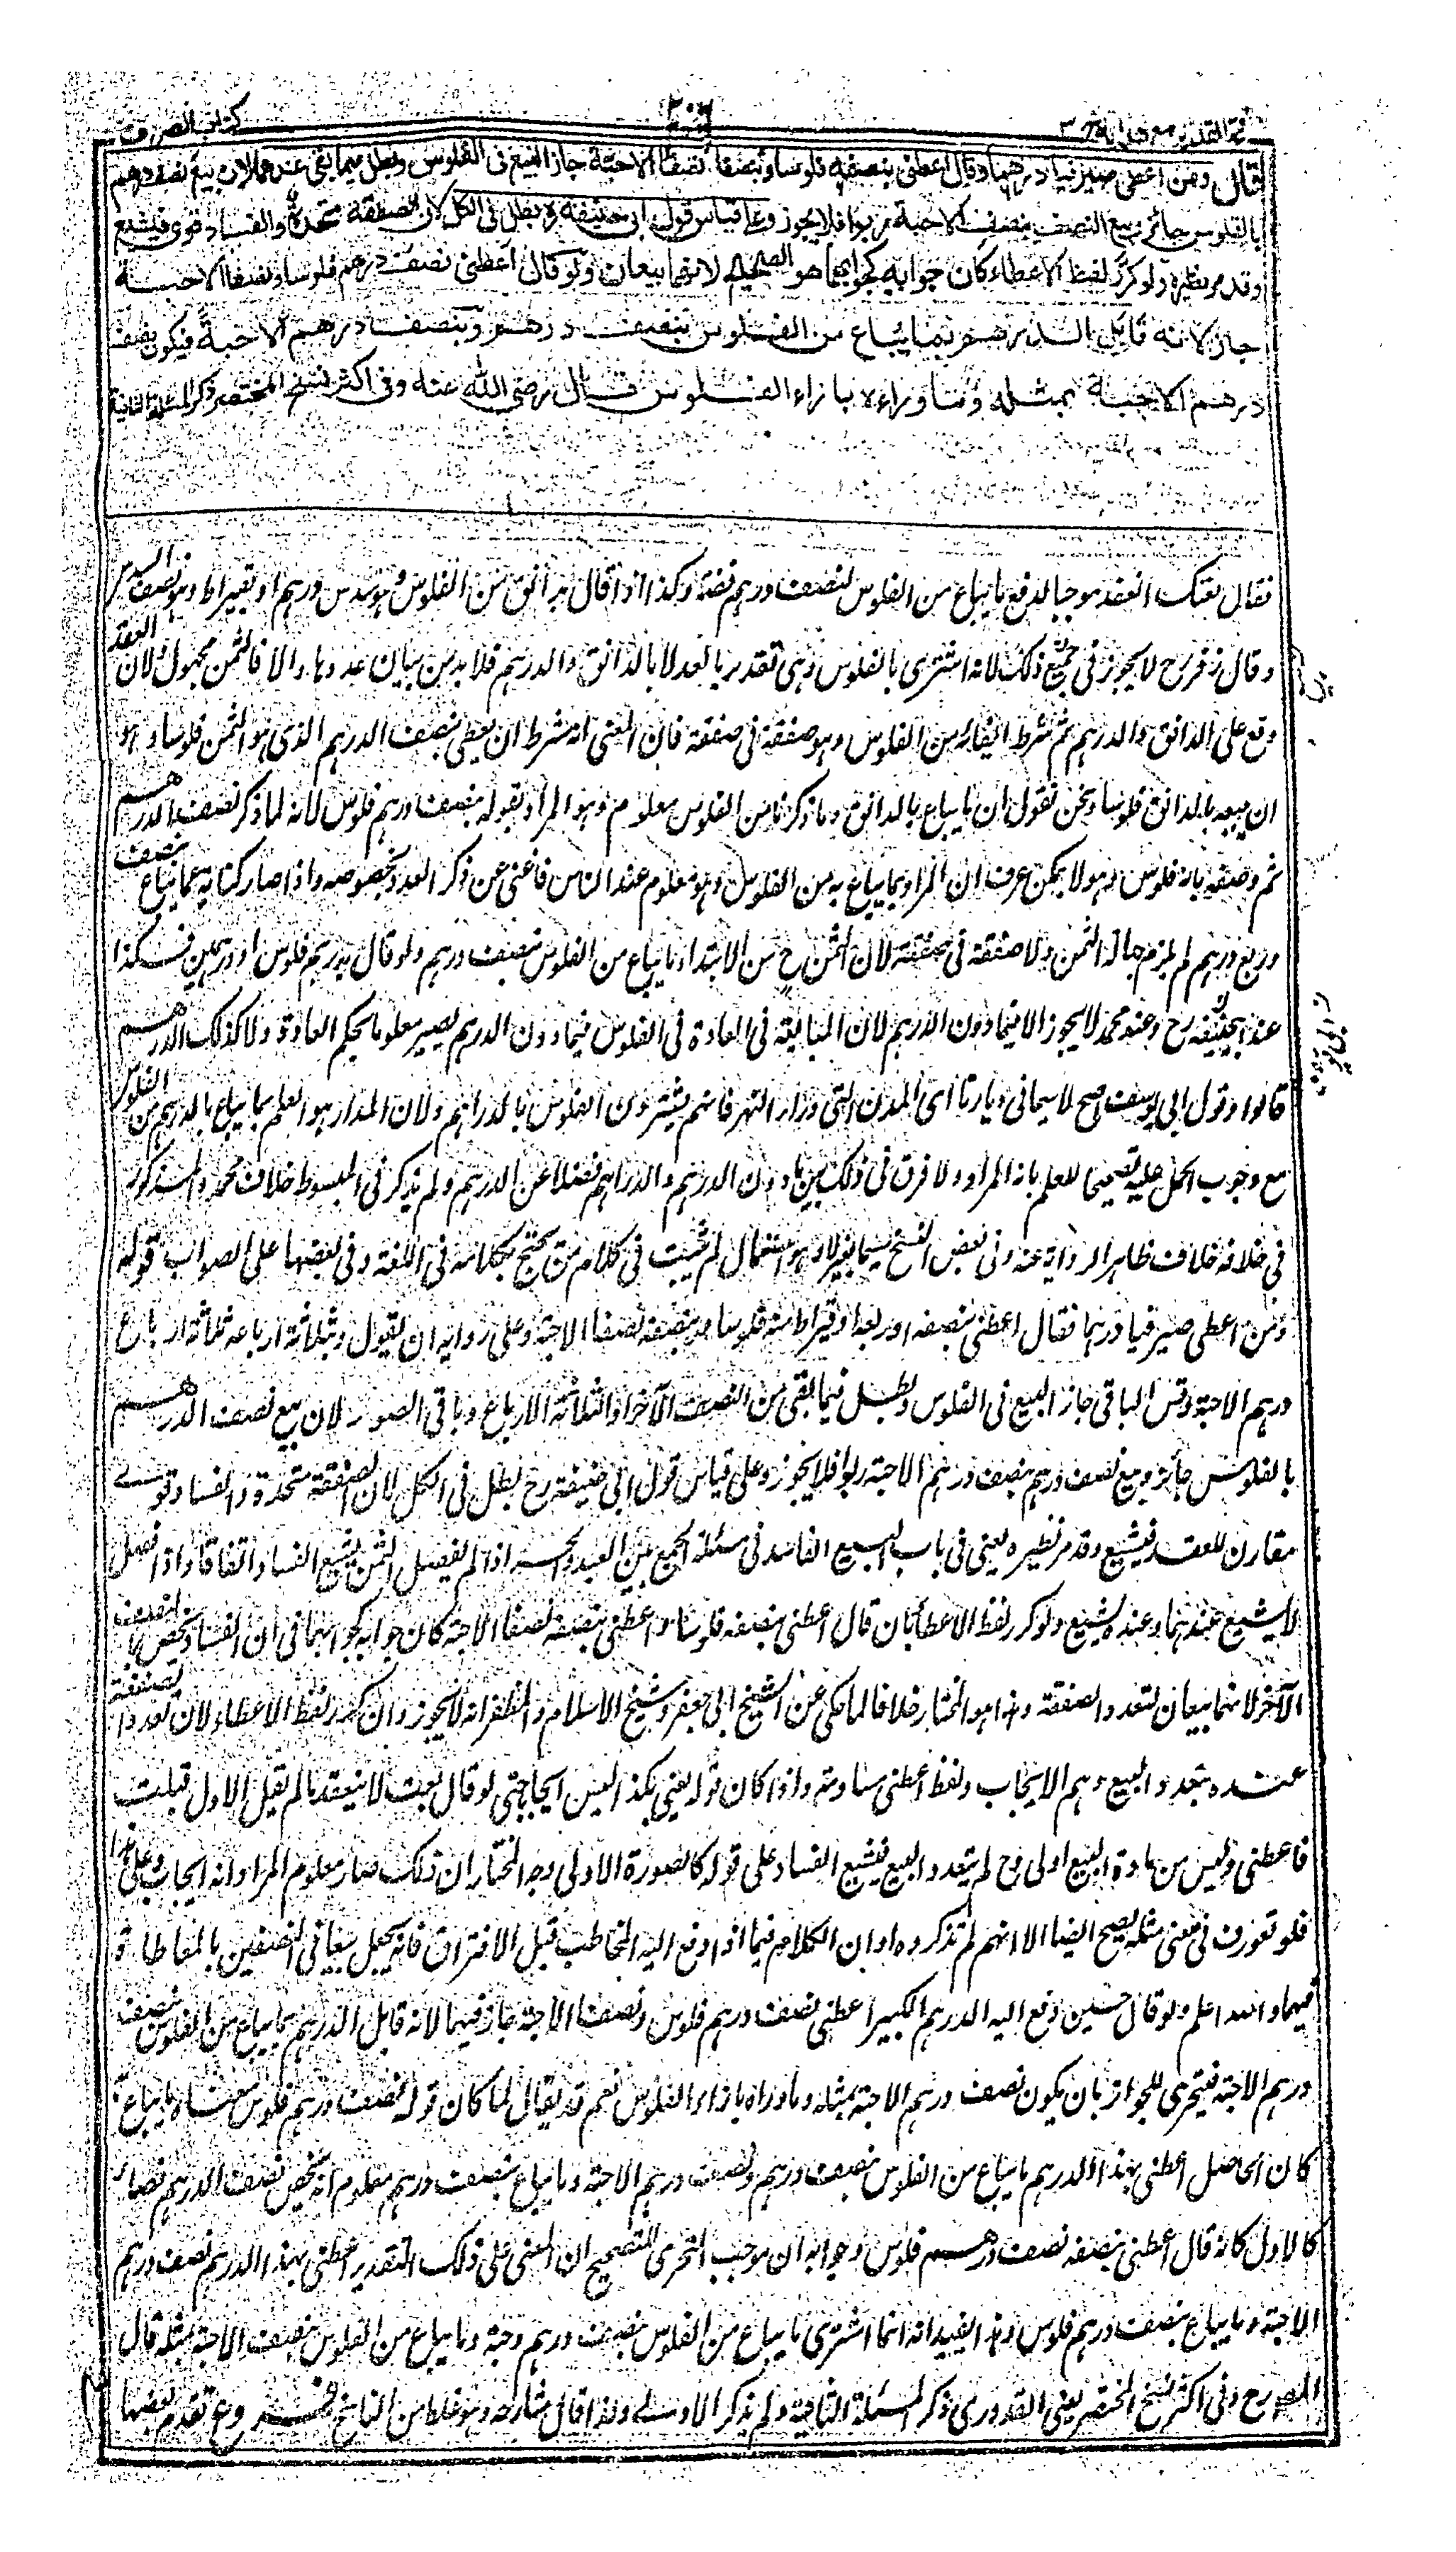 فتح القدير مع هدايه ج ٣
كتاب الصرف
قال ومن اعطى صيرفيا درهما وقال اعطنى بنصفه فلوسا وبنصفه نصفا الا حبة جاز البيع فى الفلوس وبطل فيما بقى عندهما لان بيع نصف درهم
بالفلوس جائز وبيع النصف بنصف الا حبة ربوا فلا يجوز وعلى قياس قول ابى حنيفة رح بطل فى الكل لان الصفقة متحدة والفساد قوى فيشيع
وقد مر نظيره ولو كرر لفظ الاعطاء كان جوابه كجوابهما هو الصحيح لانهما بيعان ولو قال اعطنى نصف درهم فلوسا ونصفا الا حبة
جاز لانه قابل الدرهم بما يباع من الفلوس بنصف درهم وبنصف درهم الا حبة فيكون نصف
درهم الا حبة بمثله وما وراءه بازاء الفلوس قال رضى الله عنه وفى اكثر نسخ المختصر ذكر المسئلة الثانية
فقال بعتك انعقد موجبا لدفع ما يباع من الفلوس لنصف درهم فضة وكذا اذا قال بدانق من الفلوس وهو سدس درهم او بقيراط وهو نصف السدس
وقال زفر رح لا يجوز فى جميع ذلك لانه اشترى بالفلوس وهى تقدر بالعد لا بالدانق والدرهم فلا بد من بيان عددها والا فالثمن مجهول لان العقد
وقع على الدانق والدرهم ثم شرط ايفائه من الفلوس وهو صفقة فى صفقة فان المعنى انه شرط ان يعطى بنصف الدرهم الذى هو الثمن فلوسا و
ان يبيعه بالدانق فلوسا ونحن نقول ان ما يباع بالدانق وما ذكرنا من الفلوس معلوم وهو المراد بقوله بنصف درهم فلوس لانه لما ذكر نصف الدرهم
ثم وصفه بانه فلوس وهو لا يمكن عرف ان المراد بما يباع به من الفلوس وهو معلوم عند الناس فاغنى عن ذكر العدد بخصوصه واذا صار كناية عما يباع بنصف
وربع درهم لم يلزم جهالة الثمن ولا صفقة فى صفقة لان الثمن ح من الابتداء ما يباع من الفلوس بنصف درهم ولو قال بدرهم فلوس او درهمين فكذا
عند ابى يوسف رح وعند محمد لا يجوز الا فيما دون الدرهم لان المبايعة فى العادة فى الفلوس فيما دون الدرهم يصير معلوما بحكم العادة ولا كذلك الدرهم
قالوا وقول ابى يوسف اصح لا سيما فى ديارنا اى المدن التى وراء النهر فانهم يشترون الفلوس بالدراهم ولان المدار هو العلم بما يباع بالدرهم من الفلوس
مع وجوب الحمل عليه تصحيحا للعلم بانه المراد ولا فرق فى ذلك بين ما دون الدرهم والدراهم فضلا عن الدرهم ولم يذكر فى المبسوط خلاف محمد والمذكور
فى خلافه خلاف ظاهر الرواية عنه وفى بعض النسخ سيما بغير لا وهو استعمال لم يثبت فى كلام من يحتج بكلامه فى اللغة وفى بعضها على الصواب قوله
ومن اعطى صيرفيا درهما فقال اعطنى بنصفه او ربعه او قيراط منه فلوسا وبنصفه نصفا الا حبة وعلى روايه ان يقول وبثلاثة ارباعه ثلاثة ارباع
درهم الا حبة وقس الباقى جاز البيع فى الفلوس وبطل فيما بقى من النصف الآخر او الثلاثة الارباع وباقى الصور لان بيع نصف الدرهم
بالفلوس جائز وبيع نصف درهم بنصف درهم الا حبة ربوا فلا يجوز وعلى قياس قول ابى حنيفة رح بطل فى الكل لان الصفقة متحدة والفساد قوى
مقارن للعقد فيشيع وقد مر نظيره يعنى فى باب البيع الفاسد فى مسئلة الجمع بين العبد والحر اذا لم يفصل الثمن يشيع الفساد اتفاقا واذا فصل
لا يشيع عندهما وعنده يشيع ولو كرر لفظ الاعطاء بان قال اعطنى بنصفه فلوسا واعطنى بنصفه نصفا الا حبة كان جوابه كجوابهما فى ان الفساد يخص بالنصف
الآخر لانهما بيعان لتعدد الصفقة وهذا هو المختار خلافا لما حكى عن الشيخ ابى جعفر وشيخ الاسلام والمظفر انه لا يجوز وان كرر لفظ الاعطاء لان تعدد الصفقة
عنده بتعدد البيع وهم الايجاب ولفظ اعطنى مساومة واذا كان قوله بعنى بكذا ليس ايجابا حتى لو قال بعت لا ينعقد ما لم يقل الاول قبلت
فاعطنى وليس من مادة البيع اولى وح لم يتعدد البيع فيشيع الفساد على قوله كالصورة الاولى وجه المختار ان ذلك صار معلوم المراد انه ايجاب وعلى هذا
فلو تعورف فى معنى مثله يصح ايضا الا انهم لم يذكروه او ان الكلام فيما اذا دفع اليه المخاطب قبل الافتراق فانه يجعل بيعا فى النصفين بالمعاطاة
فيهما والله اعلم ولو قال حين دفع اليه الدرهم الكبير اعطنى نصف درهم فلوس ونصفا الا حبة جاز فيهما لانه قابل الدرهم بما يباع من الفلوس بنصف
درهم الا حبة فيتحرى للجواز بان يكون نصف درهم الا حبة بمثله وما وراءه بازاء الفلوس نعم قد يقال لما كان قوله نصف درهم فلوس معناه ما يباع به
كان الحاصل اعطنى بهذا الدرهم ما يباع من الفلوس بنصف درهم ونصف درهم الا حبة وما يباع بنصف درهم معلوم انه يخص نصف الدرهم فصار
كالاول كانه قال اعطنى بنصفه نصف درهم فلوس وجوابه ان موجب التحرى للتصحيح ان المعنى على ذلك التقدير اعطنى بهذا الدرهم نصف درهم
الا حبة وما يباع بنصف درهم فلوس وهذا يفيد انه انما اشترى ما يباع من الفلوس بنصف درهم وحبة وما يباع من الفلوس بنصف الا حبة بمثله قال
المص رح وفى اكثر نسخ المختصر يعنى القدورى ذكر المسئلة الثانية ولم يذكر الاولى ولذا قال شارحه وهو غلط من الناسخ فروع تقدم بعضها